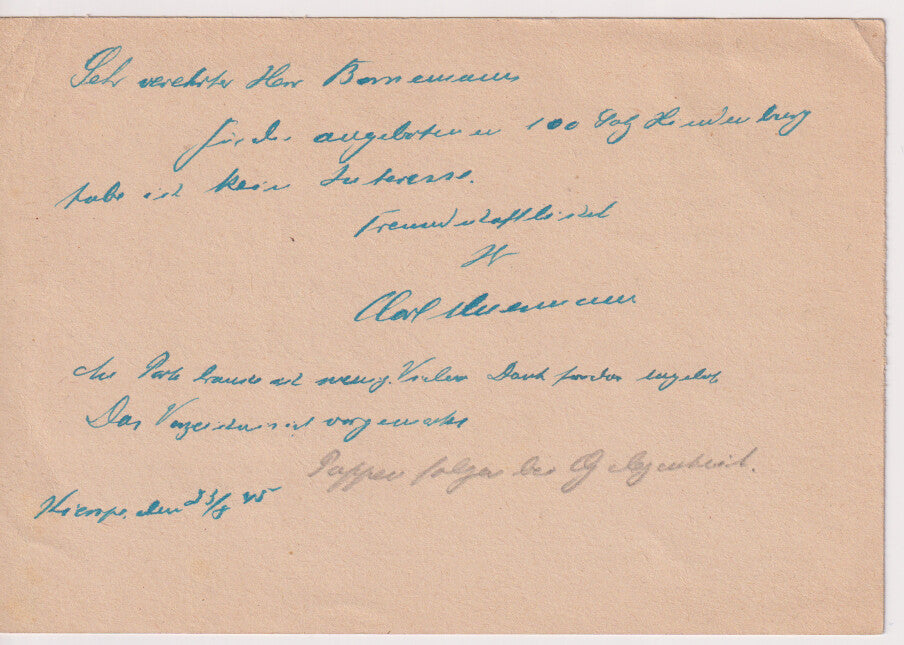 Sehr verehrter Herr Bornemann
für die angebotenen 100 Satz Hindenburg
habe ich kein Interesse.
Freundschaftlichst
Ihr
Carl
An Porto brauche ich wenig. Vielen Dank für das Angebot
Das Verzeichnis ist vorgemerkt
Pappen folgen bei Gelegenheit.
Kierspe, den 23/8 45